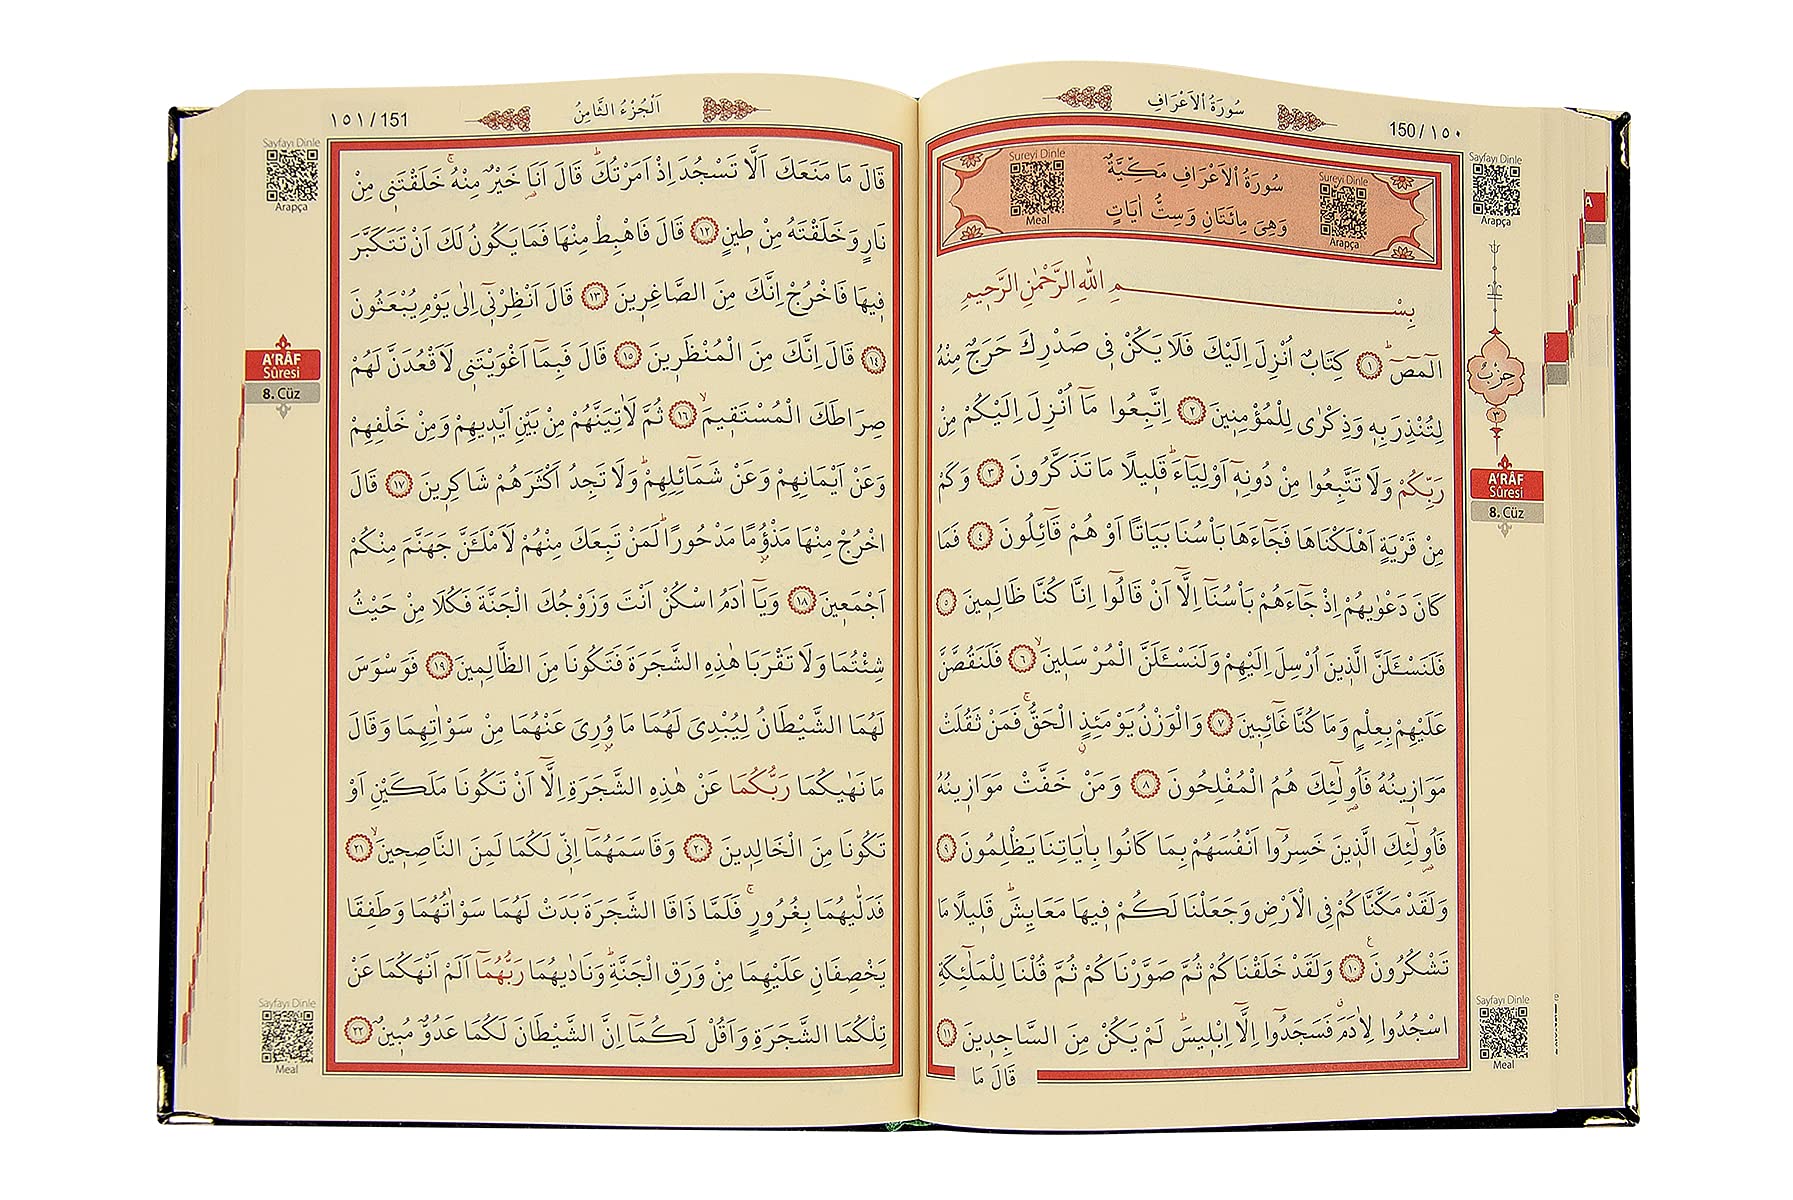 سُورَةُ الْاَعْرَافِ
150 / ١٥٠
Sureyi Dinle
Meal
سُورَةُ الْاَعْرَافِ مَكِّيَّةٌ
وَهِىَ مِائَتَانِ وَسِتُّ اٰيَاتٍ
Sureyi Dinle
Arapça
Sayfayı Dinle
Arapça
بِسْمِ اللهِ الرَّحْمٰنِ الرَّحِيمِ
الٓمٓصٓ ﴿١﴾ كِتَابٌ اُنْزِلَ اِلَيْكَ فَلَا يَكُنْ فِى صَدْرِكَ حَرَجٌ مِنْهُ
لِتُنْذِرَ بِهِ وَذِكْرٰى لِلْمُؤْمِنِينَ ﴿٢﴾ اِتَّبِعُوا مَٓا اُنْزِلَ اِلَيْكُمْ مِنْ
رَبِّكُمْ وَلَا تَتَّبِعُوا مِنْ دُونِهِٓ اَوْلِيَٓاءَ قَلِيلًا مَا تَذَكَّرُونَ ﴿٣﴾ وَكَمْ
مِنْ قَرْيَةٍ اَهْلَكْنَاهَا فَجَٓاءَهَا بَاْسُنَا بَيَاتًا اَوْ هُمْ قَٓائِلُونَ ﴿٤﴾ فَمَا
كَانَ دَعْوٰيهُمْ اِذْ جَٓاءَهُمْ بَاْسُنَٓا اِلَّٓا اَنْ قَالُٓوا اِنَّا كُنَّا ظَالِمِينَ ﴿٥﴾
فَلَنَسْـَٔلَنَّ الَّذِينَ اُرْسِلَ اِلَيْهِمْ وَلَنَسْـَٔلَنَّ الْمُرْسَلِينَ ﴿٦﴾ فَلَنَقُصَّنَّ
عَلَيْهِمْ بِعِلْمٍ وَمَا كُنَّا غَٓائِبِينَ ﴿٧﴾ وَالْوَزْنُ يَوْمَئِذٍ الْحَقُّ فَمَنْ ثَقُلَتْ
مَوَازِينُهُ فَاُولٰٓئِكَ هُمُ الْمُفْلِحُونَ ﴿٨﴾ وَمَنْ خَفَّتْ مَوَازِينُهُ
فَاُولٰٓئِكَ الَّذِينَ خَسِرُٓوا اَنْفُسَهُمْ بِمَا كَانُوا بِاٰيَاتِنَا يَظْلِمُونَ ﴿٩﴾
وَلَقَدْ مَكَّنَّاكُمْ فِى الْاَرْضِ وَجَعَلْنَا لَكُمْ فِيهَا مَعَايِشَ قَلِيلًا مَا
تَشْكُرُونَ ﴿١٠﴾ وَلَقَدْ خَلَقْنَاكُمْ ثُمَّ صَوَّرْنَاكُمْ ثُمَّ قُلْنَا لِلْمَلٰٓئِكَةِ
اسْجُدُوا لِاٰدَمَ فَسَجَدُٓوا اِلَّٓا اِبْلِيسَ لَمْ يَكُنْ مِنَ السَّاجِدِينَ ﴿١١﴾
قَالَ مَا
حِزْبُ
٣
A'RÂF
Sûresi
8. Cüz
Sayfayı Dinle
Meal
A
اَلْجُزْءُ الثَّامِنُ
١٥١ / 151
Sayfayı Dinle
Arapça
قَالَ مَا مَنَعَكَ اَلَّا تَسْجُدَ اِذْ اَمَرْتُكَ قَالَ اَنَا خَيْرٌ مِنْهُ خَلَقْتَنِى مِنْ
نَارٍ وَخَلَقْتَهُ مِنْ طِينٍ ﴿١٢﴾ قَالَ فَاهْبِطْ مِنْهَا فَمَا يَكُونُ لَكَ اَنْ تَتَكَبَّرَ
فِيهَا فَاخْرُجْ اِنَّكَ مِنَ الصَّاغِرِينَ ﴿١٣﴾ قَالَ اَنْظِرْنِٓى اِلٰى يَوْمِ يُبْعَثُونَ
﴿١٤﴾ قَالَ اِنَّكَ مِنَ الْمُنْظَرِينَ ﴿١٥﴾ قَالَ فَبِمَٓا اَغْوَيْتَنِى لَاَقْعُدَنَّ لَهُمْ
صِرَاطَكَ الْمُسْتَقِيمَ ﴿١٦﴾ ثُمَّ لَاٰتِيَنَّهُمْ مِنْ بَيْنِ اَيْدِيهِمْ وَمِنْ خَلْفِهِمْ
وَعَنْ اَيْمَانِهِمْ وَعَنْ شَمَٓائِلِهِمْ وَلَا تَجِدُ اَكْثَرَهُمْ شَاكِرِينَ ﴿١٧﴾ قَالَ
اخْرُجْ مِنْهَا مَذْؤُمًا مَدْحُورًا لَمَنْ تَبِعَكَ مِنْهُمْ لَاَمْلَـَٔنَّ جَهَنَّمَ مِنْكُمْ
اَجْمَعِينَ ﴿١٨﴾ وَيَٓا اٰدَمُ اسْكُنْ اَنْتَ وَزَوْجُكَ الْجَنَّةَ فَكُلَا مِنْ حَيْثُ
شِئْتُمَا وَلَا تَقْرَبَا هٰذِهِ الشَّجَرَةَ فَتَكُونَا مِنَ الظَّالِمِينَ ﴿١٩﴾ فَوَسْوَسَ
لَهُمَا الشَّيْطَانُ لِيُبْدِىَ لَهُمَا مَا وُرِىَ عَنْهُمَا مِنْ سَوْاٰتِهِمَا وَقَالَ
مَا نَهٰيكُمَا رَبُّكُمَا عَنْ هٰذِهِ الشَّجَرَةِ اِلَّٓا اَنْ تَكُونَا مَلَكَيْنِ اَوْ
تَكُونَا مِنَ الْخَالِدِينَ ﴿٢٠﴾ وَقَاسَمَهُمَٓا اِنِّى لَكُمَا لَمِنَ النَّاصِحِينَ ﴿٢١﴾
فَدَلّٰيهُمَا بِغُرُورٍ فَلَمَّا ذَاقَا الشَّجَرَةَ بَدَتْ لَهُمَا سَوْاٰتُهُمَا وَطَفِقَا
يَخْصِفَانِ عَلَيْهِمَا مِنْ وَرَقِ الْجَنَّةِ وَنَادٰيهُمَا رَبُّهُمَٓا اَلَمْ اَنْهَكُمَا عَنْ
تِلْكُمَا الشَّجَرَةِ وَاَقُلْ لَكُمَٓا اِنَّ الشَّيْطَانَ لَكُمَا عَدُوٌّ مُبِينٌ ﴿٢٢﴾
A'RÂF
Sûresi
8. Cüz
Sayfayı Dinle
Meal